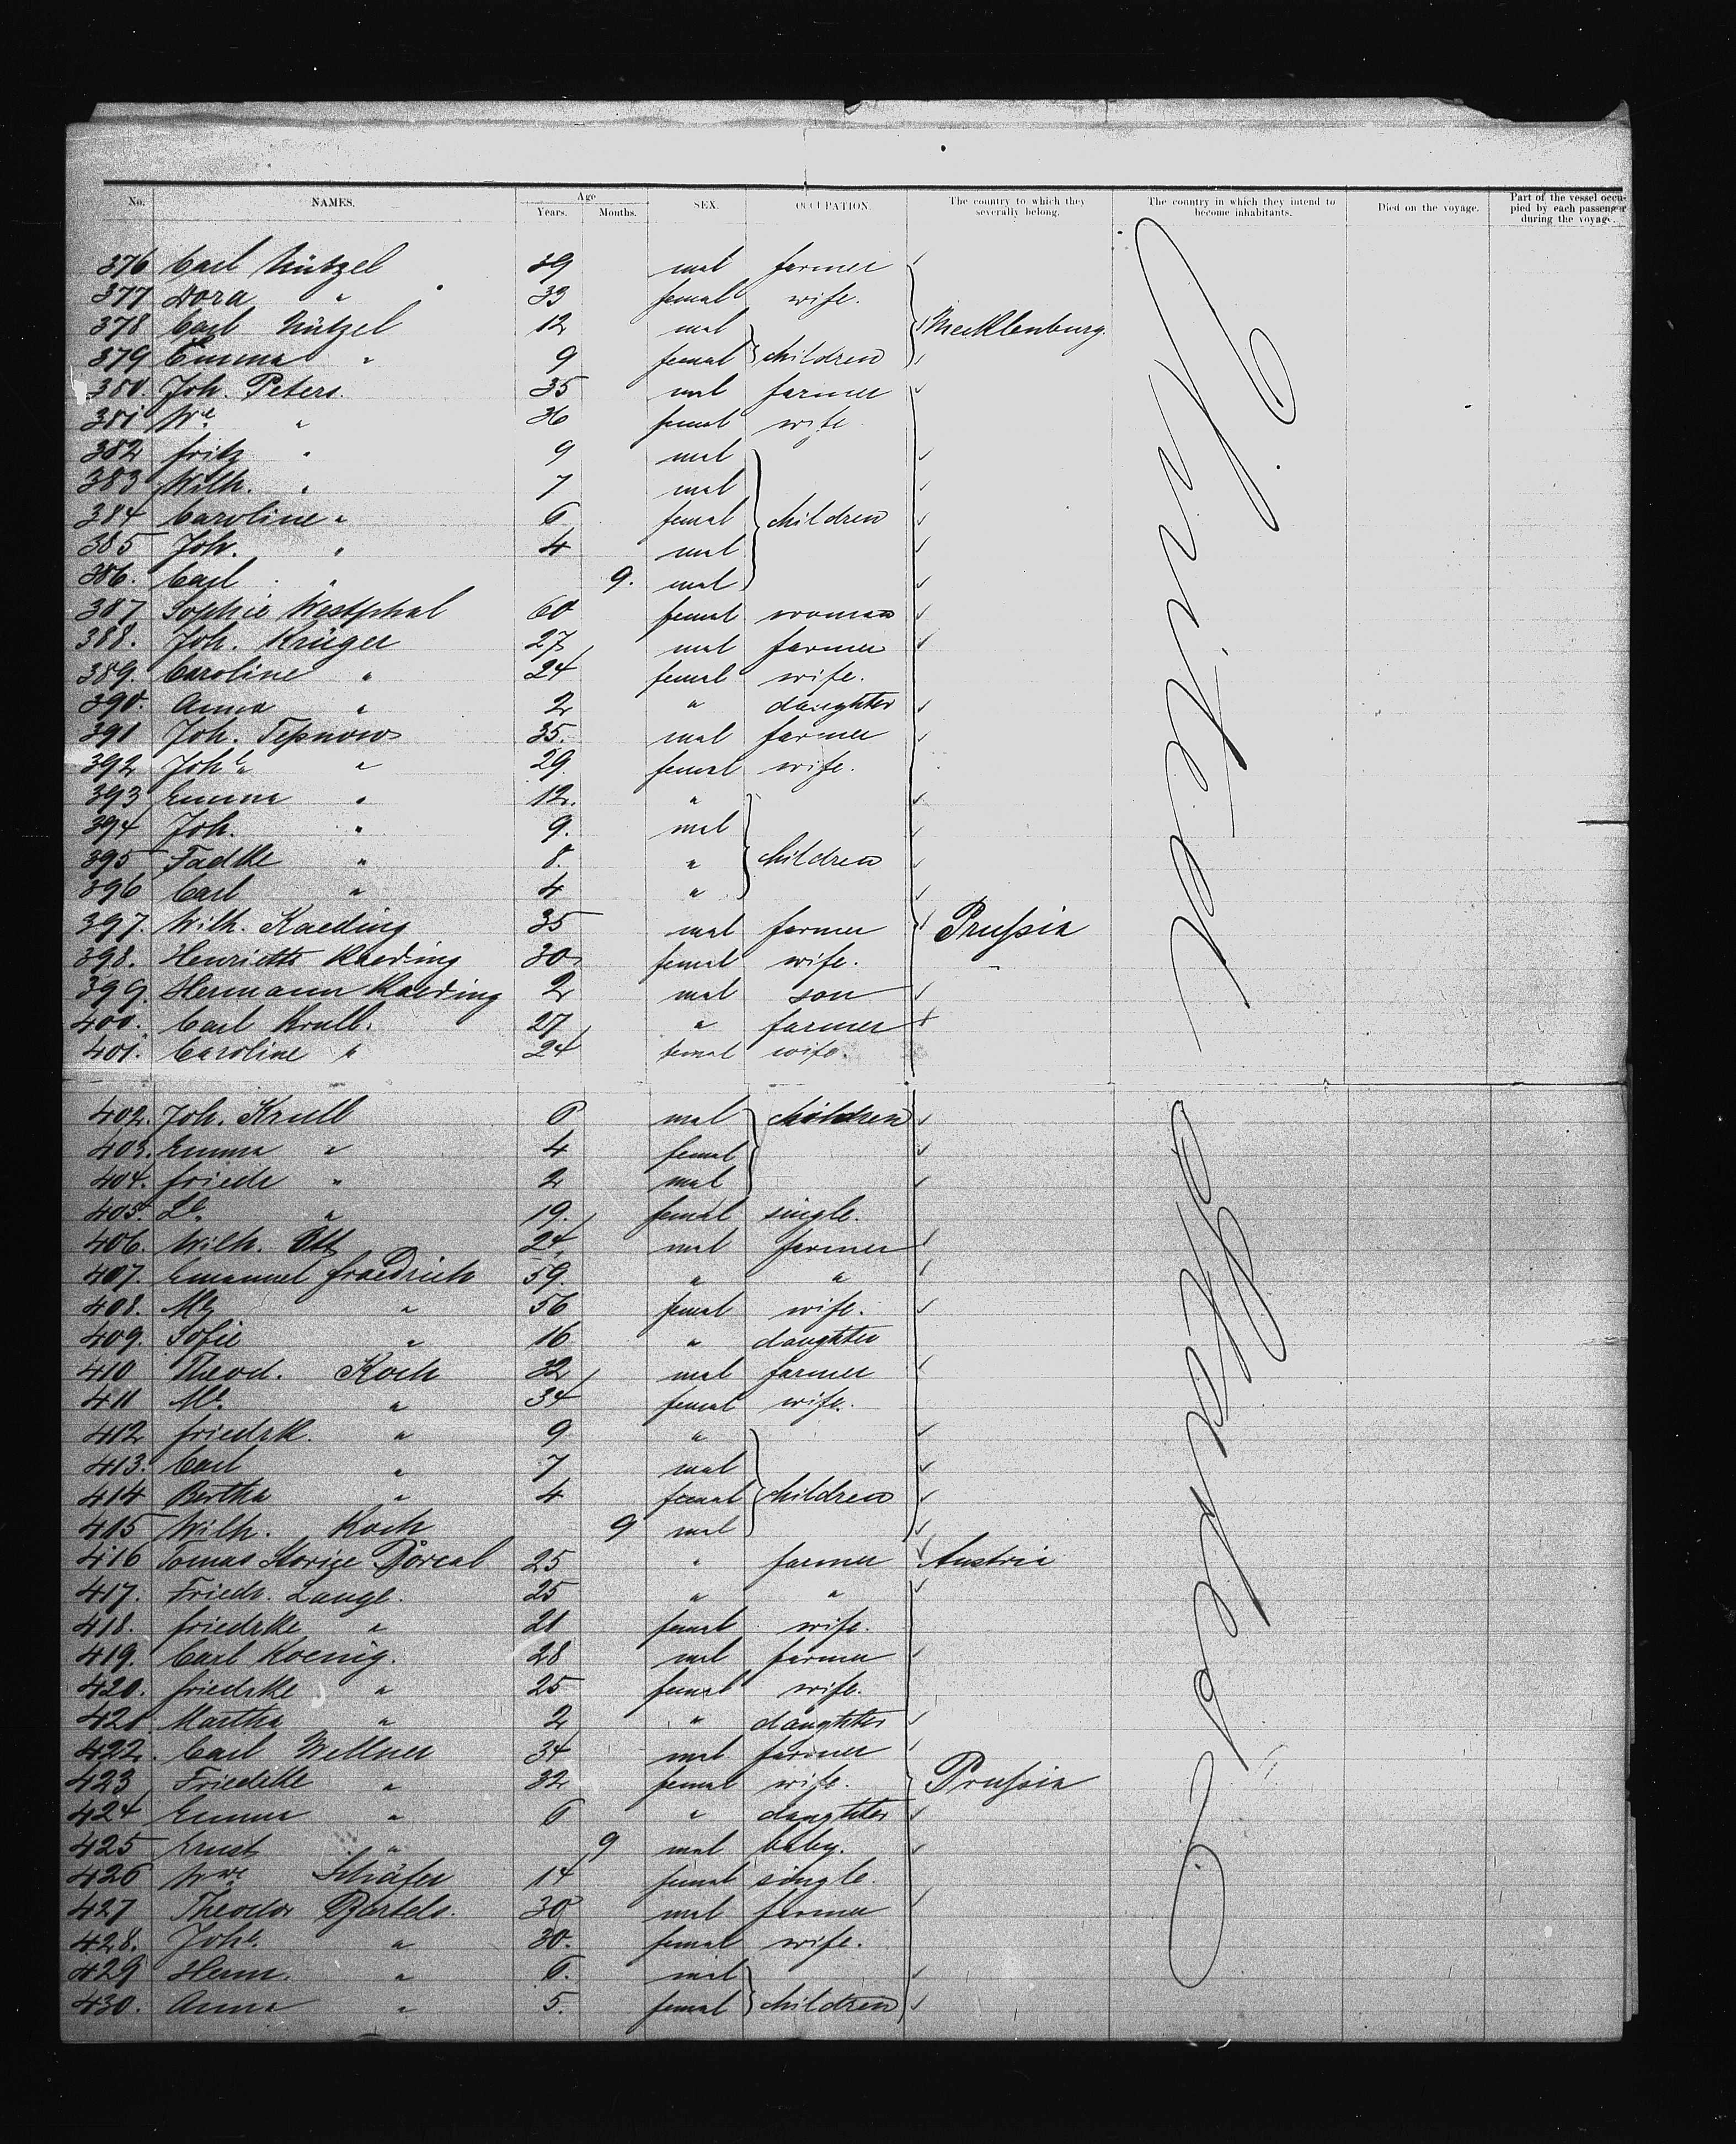 No. NAMES. Age Years. Months. SEX. OCCUPATION. The country to which they severally belong. The country in which they intend to become inhabitants. Died on the voyage. Part of the vessel occupied by each passenger during the voyage.
376 Carl Nützel 39 mal farmer
377 Dora " 33 femal wife.
378 Carl Nützel 12 mal Mecklenburg.
379 Emma " 9 femal children
380. Joh. Peters. 35 mal farmer
381 We " 36 femal wife
382 Fritz " 9 mal
383 Wilh. " 7 mal
384 Caroline " 6 femal children
385 Joh. " 4 mal
386. Carl " 9. mal
387 Sophie Westphal 60 femal woman
388. Joh. Krüger 27 mal farmer
389. Caroline " 24 femal wife.
390. Anna " 2 " daughter
391 Joh. Teßnow 35. mal farmer
392 Johe " 29. femal wife.
393 Emma " 12. "
394 Joh. " 9. mal
395 " 8. " children
396 Carl " 4 "
397. Wilh. Kaeding 35 mal farmer Prußia
398. Henriette Kaeding 30 femal wife.
399. Hermann Kaeding 2 mal son
400. Carl Krull. 27 " farmer
401. Caroline " 24 femal wife.
402. Joh. Krull 6 mal children
403. Emma " 4 femal
404. Friedr " 2 mal
405. " 19. femal single.
406. Wilh. Ott 24 mal farmer
407. Emanuel Fraedrich 59. " "
408. " 56 femal wife.
409. Sofie " 16 " daughter
410 Theod. Koch 32 mal farmer
411 Me. " 34 femal wife.
412 Friedrk. " 9 "
413. Carl " 7 mal
414 Bertha " 4 femal children
415 Wilh. Koch 9 mal
416 Tomas 25 " farmer Austria
417. Friedr. Lange. 25 " "
418. Friedrke " 21 femal wife.
419. Carl Koenig. 28 mal farmer
420. Friedrke " 25 femal wife.
421. Martha " 2 " daughter
422. Carl Wellner 34 mal farmer
423 Friedrke " 32 femal wife. Prußia
424 Emma " 6 " daughter
425 Ernst " 9 mal baby.
426 Wne Schäfer 14 femal single.
427 Theodor Bartels. 30 mal farmer
428. Johe. " 30. femal wife.
429 Herm. " 6. mal
430. Anna " 5. femal children
United States